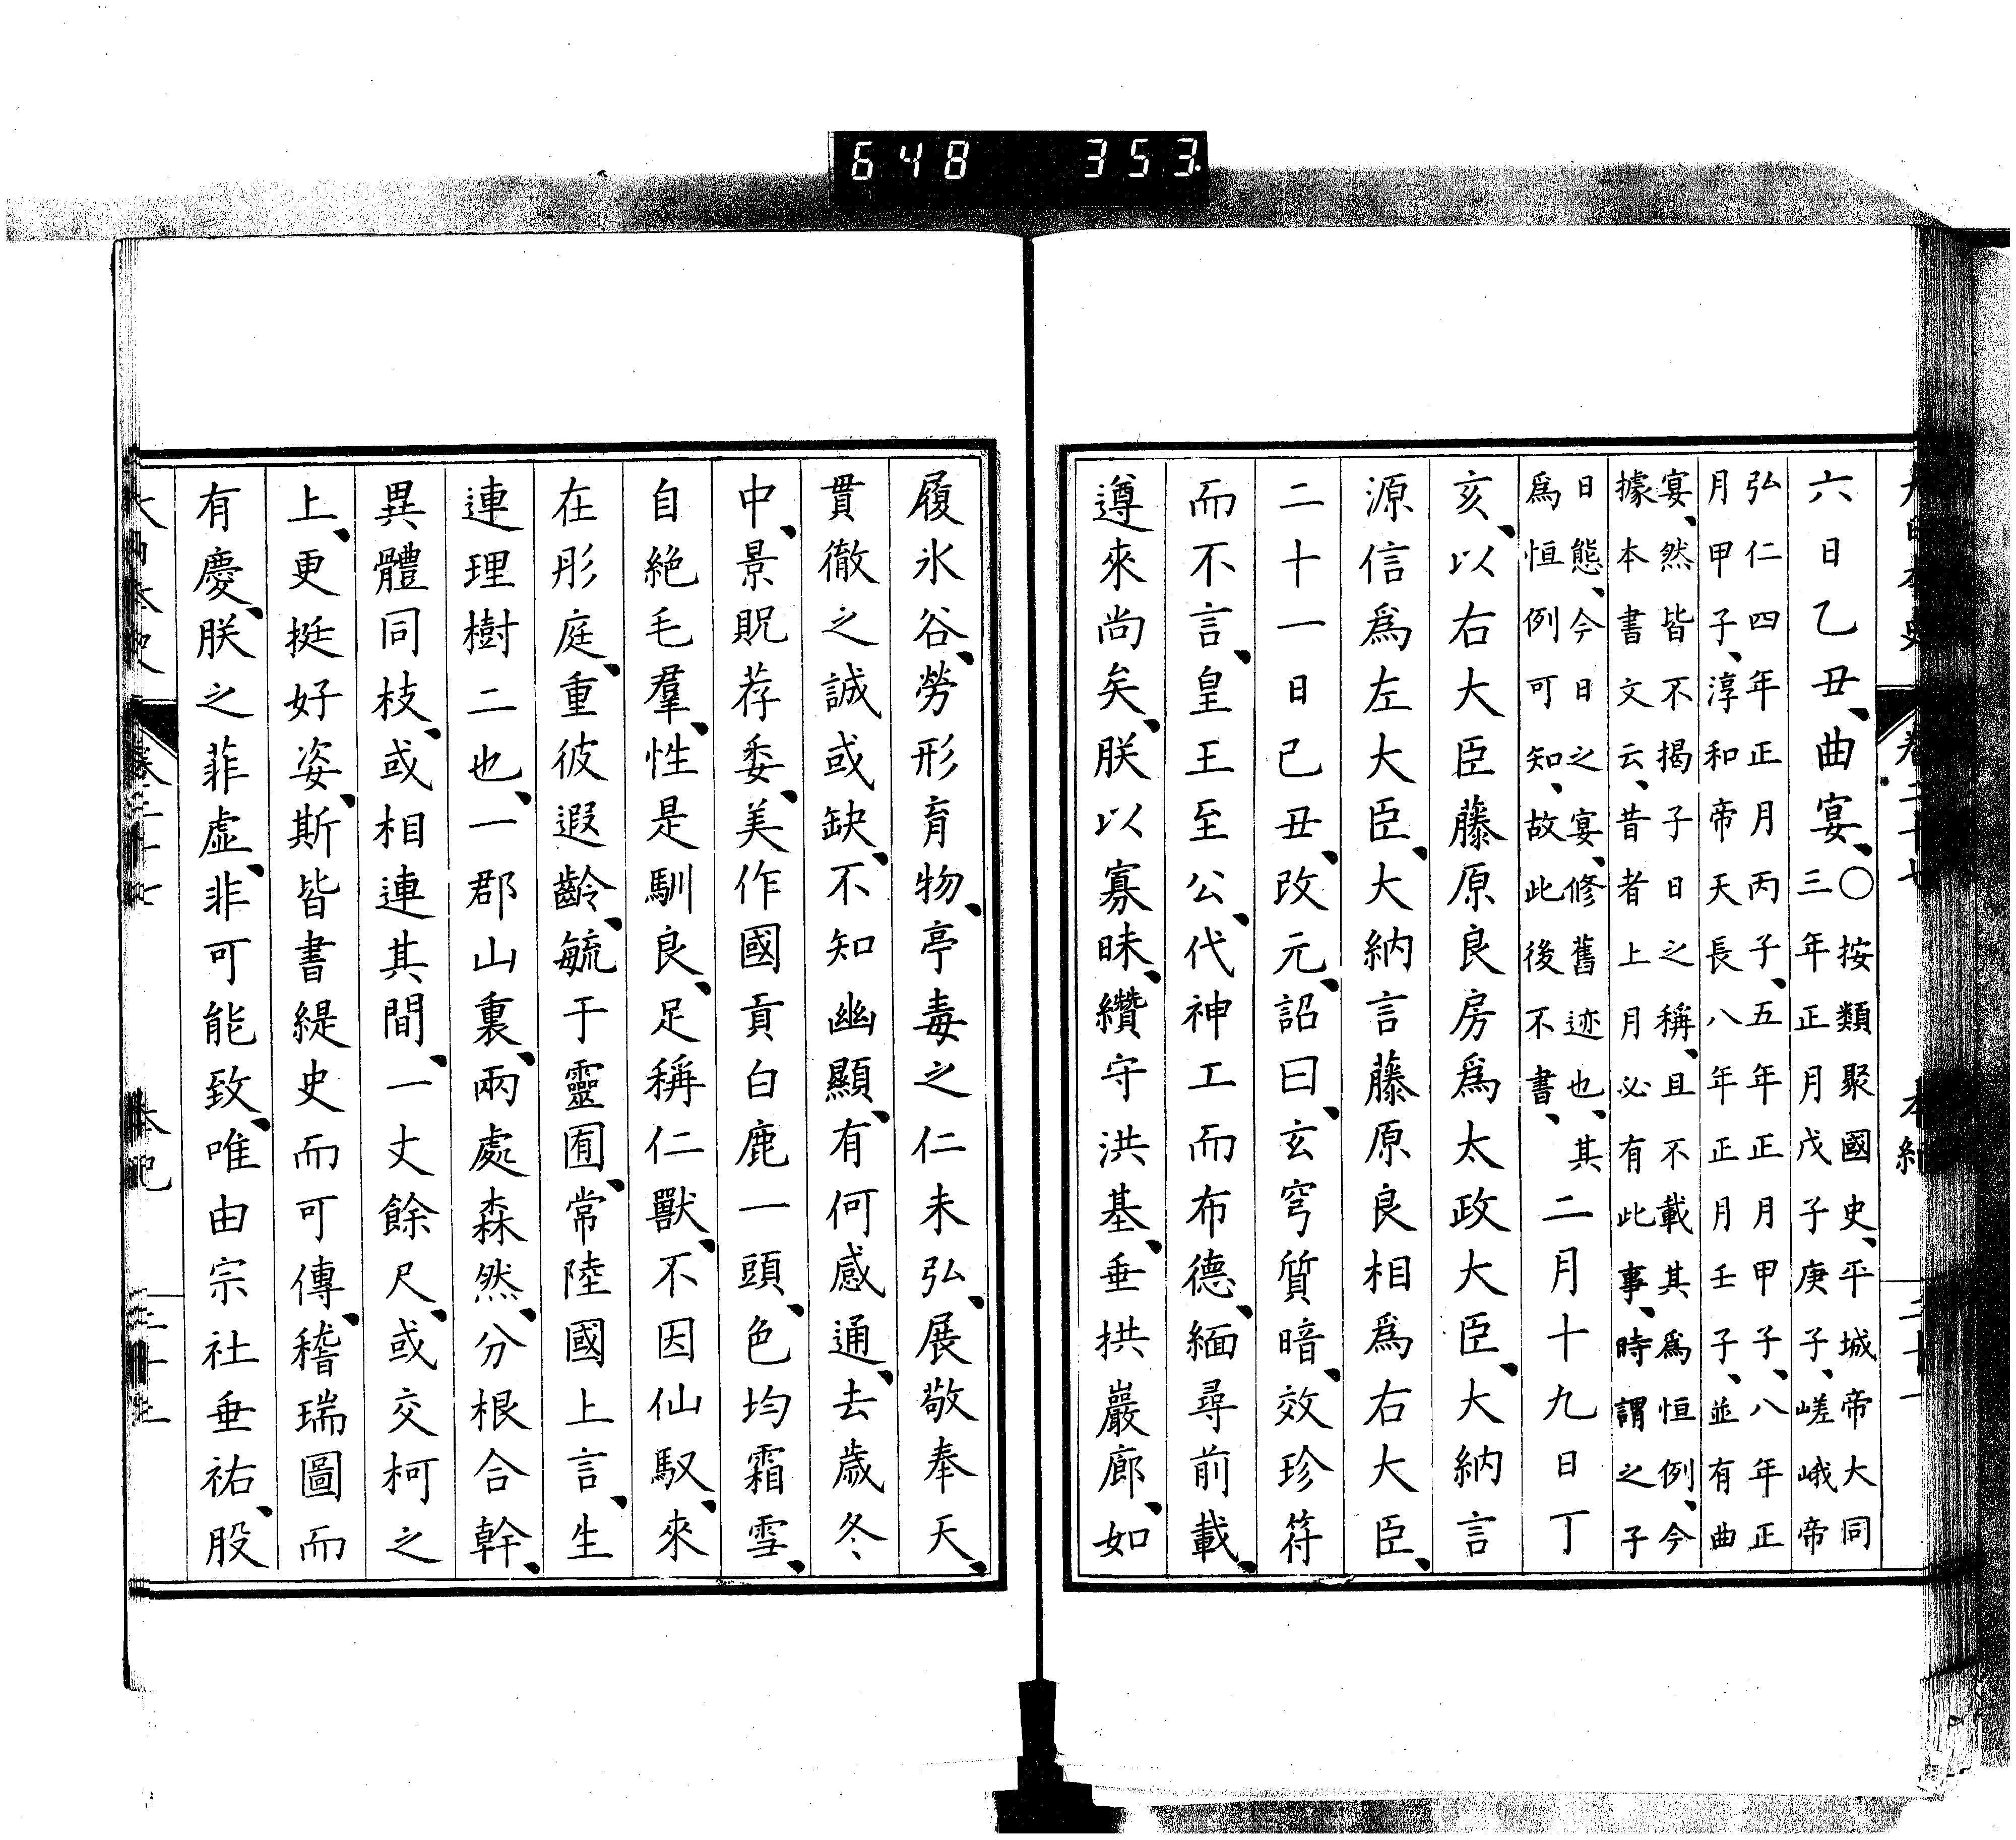 648 353
六日乙丑、曲宴、○按類聚國史、平城帝大同
三年正月戊子庚子、嵯峨帝
弘仁四年正月丙子、五年正月甲子、八年正
月甲子、淳和帝天長八年正月壬子、並有曲
宴、然皆不揭子日之稱、且不載其爲恒例、今
據本書文云、昔者上月必有此事、時謂之子
日態、今日之宴、修舊迹也、其
爲恒例可知、故此後不書、二月十九日丁
亥、以右大臣藤原良房爲太政大臣、大納言
源信爲左大臣、大納言藤原良相爲右大臣、
二十一日己丑、改元、詔曰、玄穹質暗、效珍符
而不言、皇王至公、代神工而布德、緬尋前載、
遵來尚矣、朕以寡昧、纘守洪基、垂拱巖廊、如
履氷谷、勞形育物、亭毒之仁未弘、展敬奉天、
貫徹之誠或缺、不知幽顯、有何感通、去歲冬
中、景貺荐委、美作國貢白鹿一頭、色均霜雪、
自絶毛羣、性是馴良、足稱仁獸、不因仙馭、來
在彤庭、重彼遐齡、毓于靈囿、常陸國上言、生
連理樹二也、一郡山裏、兩處森然、分根合幹、
異體同枝、或相連其間、一丈餘尺、或交柯之
上、更挺好姿、斯皆書緹史而可傳、稽瑞圖而
有慶、朕之菲虛、非可能致、唯由宗社垂祐、股